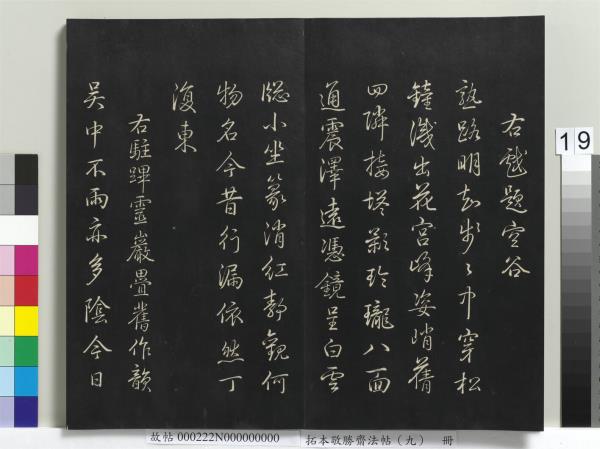 右戲題空谷
熟路明知步々中穿松
鐘出花宮峰姿峭蒨
四隣接塔影玲瓏八面
通震澤遠憑鏡呈白雲
牕小坐篆消紅靜觀何
物名今昔行漏依然丁
復東
右駐蹕靈巖疊舊作韻
吳中不雨亦多陰今日
19
故帖 000222N000000000
拓本敬勝齋法帖（九） 冊